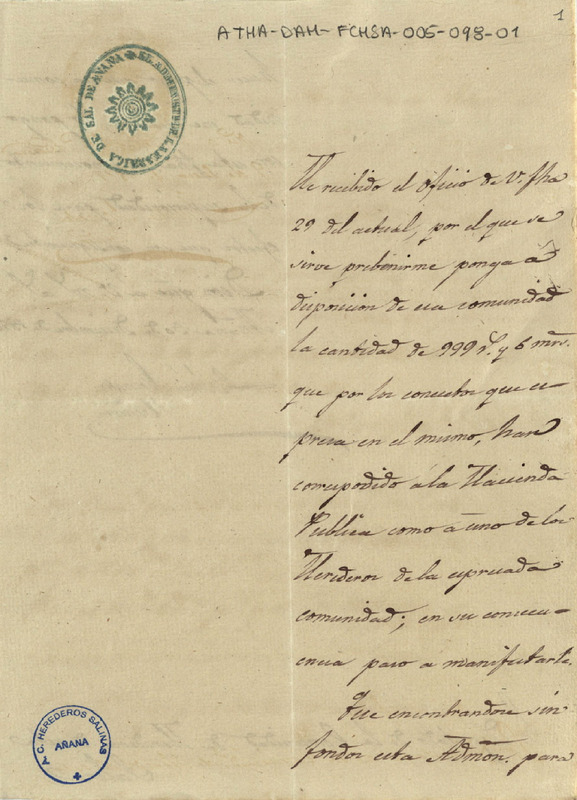 1
ATHA-DAH-FCHSA-005-098-01
EL ADMINISTR DE LA FABRICA DE SAL DE AÑANA
He recibido el Oficio de V. fha
29 del actual, por el que se
sirve prebenirme ponga a
disposicion de esa comunidad
la cantidad de 999 rs. y 6 mrs.
que por los concectos que es-
presa en el mismo, han
correspodido á la Hacienda
Publica como á uno de los
Herederos de la espresada
comunidad; en su consecu-
encia paso a manifestarle.
Que encontrandose sin
fondos esta Admon. para
C. HEREDEROS SALINAS
AÑANA